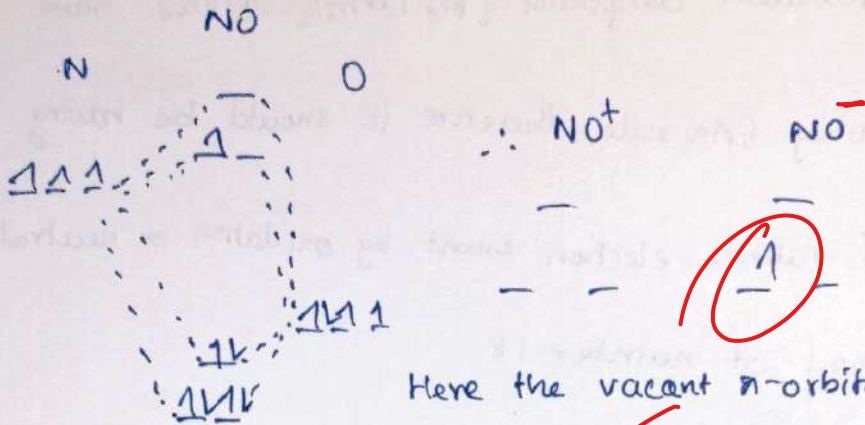 NO
N O
∴ NO⁺ NO⁻
Here the vacant π-orbit